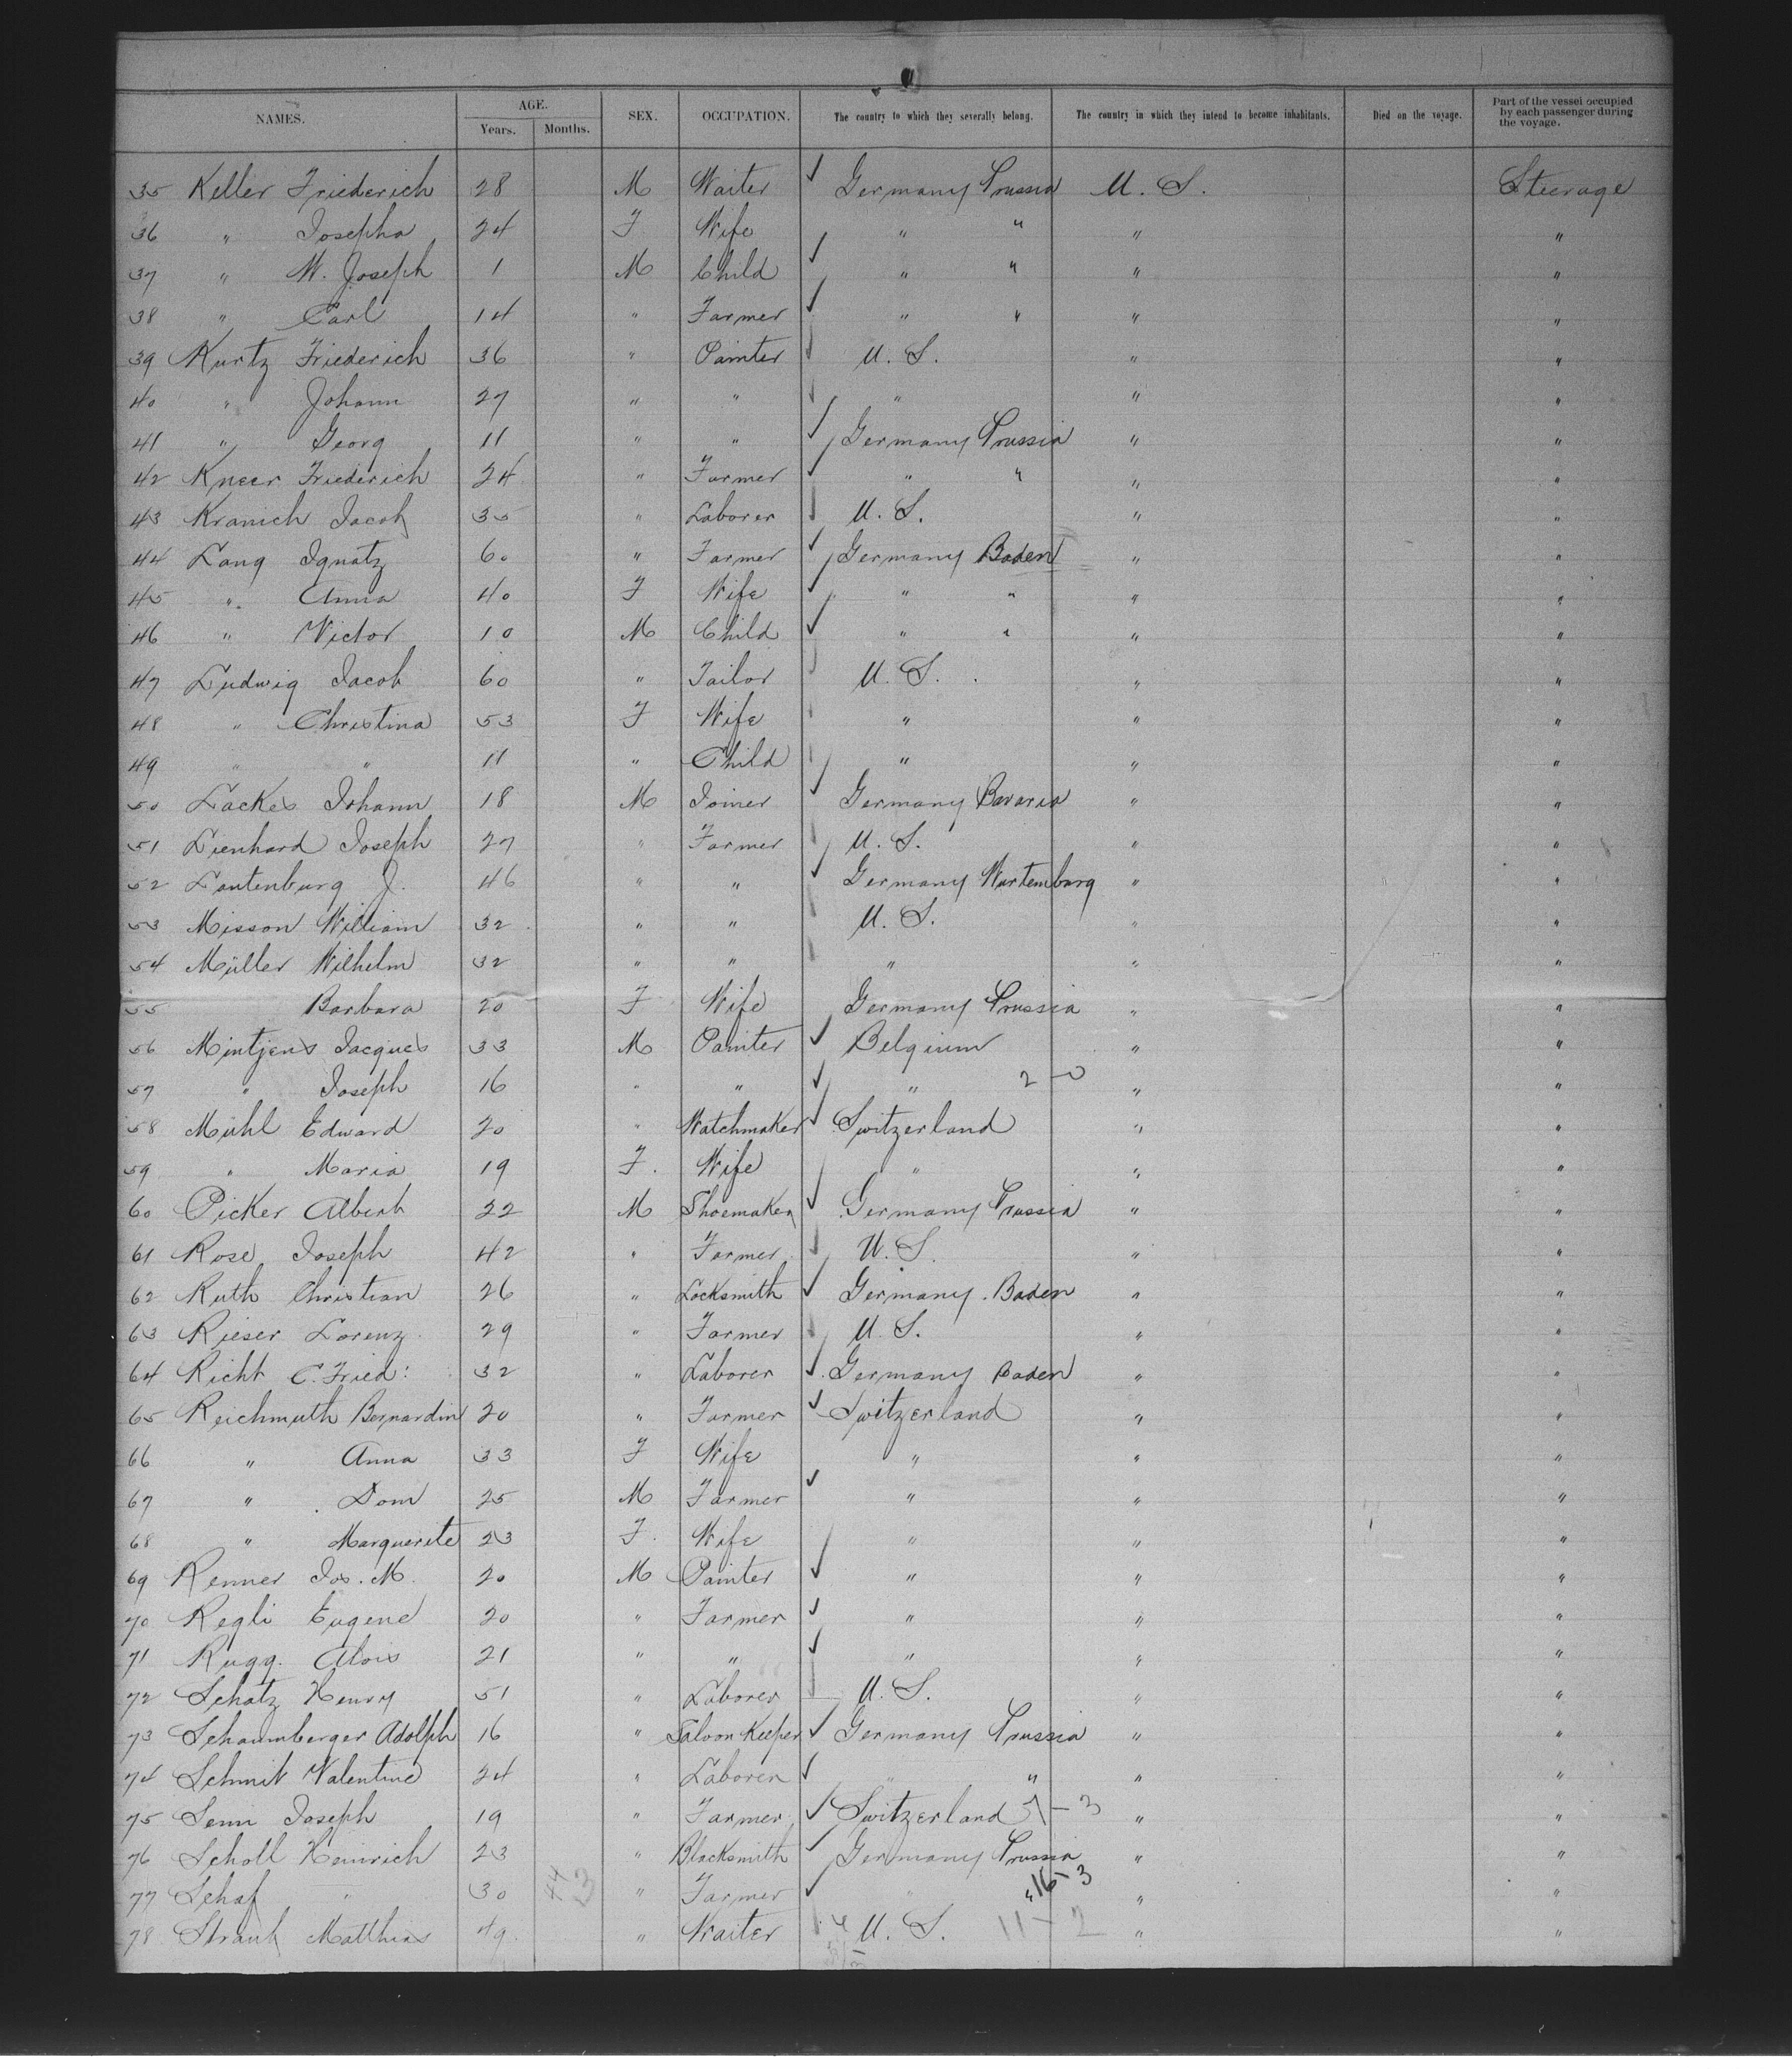 NAMES. AGE. SEX. OCCUPATION. The country to which they severally belong. The country in which they intend to become inhabitants. Died on the voyage. Part of the vessel occupied by each passenger during the voyage.
Years. Months.
35 Keller Friederich 28 M Waiter Germany Prussia U. S. Steerage
36 " Josepha 24 F Wife " " " "
37 " M. Joseph 1 M Child " " " "
38 " Carl 14 " Farmer " " " "
39 Kurtz Friederich 36 " Painter U. S. " "
40 " Johann 27 " " " " "
41 " Georg 11 " " Germany Prussia " "
42 Kneer Friederich 24 " Farmer " " " "
43 Kranich Jacob 35 " Laborer U. S. " "
44 Lang Ignatz 60 " Farmer Germany Baden " "
45 " Anna 40 F Wife " " " "
46 " Victor 10 M Child " " " "
47 Ludwig Jacob 60 " Tailor U. S. " "
48 " Christina 53 F Wife " " "
49 " " 11 " Child " " "
50 Lackes Johann 18 M Joiner Germany Bavaria " "
51 Lienhard Joseph 27 " Farmer U. S. " "
52 Lautenburg J. 46 " " Germany Wurtemburg " "
53 Misson William 32 " " U. S. " "
54 Müller Wilhelm 32 " " " " "
55 Barbara 20 F Wife Germany Prussia " "
56 Mintjens Jacques 33 M Painter Belgium " "
57 " Joseph 16 " " " 2 - 0 " "
58 Mühl Edward 20 " Watchmaker Switzerland " "
59 " Maria 19 F. Wife " " "
60 Picker Albert 22 M Shoemaker Germany Prussia " "
61 Rose Joseph 42 " Farmer U. S. " "
62 Ruth Christian 26 " Locksmith Germany Baden " "
63 Rieser Lorenz 29 " Farmer U. S. " "
64 Richt C. Fried: 32 " Laborer Germany Baden " "
65 Reichmuth Bernardin 20 " Farmer Switzerland " "
66 " Anna 33 F Wife " " "
67 " Dom 25 M Farmer " " "
68 " Marguerite 23 F. Wife " " "
69 Renner Jos. M. 20 M Painter " " "
70 Regli Eugene 20 " Farmer " " "
71 Rugg. Alois 21 " " " " "
72 Schatz Henry 51 " Laborer U. S. " "
73 Schaumberger Adolph 16 " Saloon Keeper Germany Prussia " "
74 Schmit Valentine 24 " Laborer " " " "
75 Senn Joseph 19 " Farmer Switzerland 7 - 3 " "
76 Scholl Heinrich 23 " Blacksmith Germany Prussia " "
77 Schaf " 30 44 " Farmer " 16 - 3 " "
78 Straub Matthias 49 " Waiter U. S. 11 - 2 " "